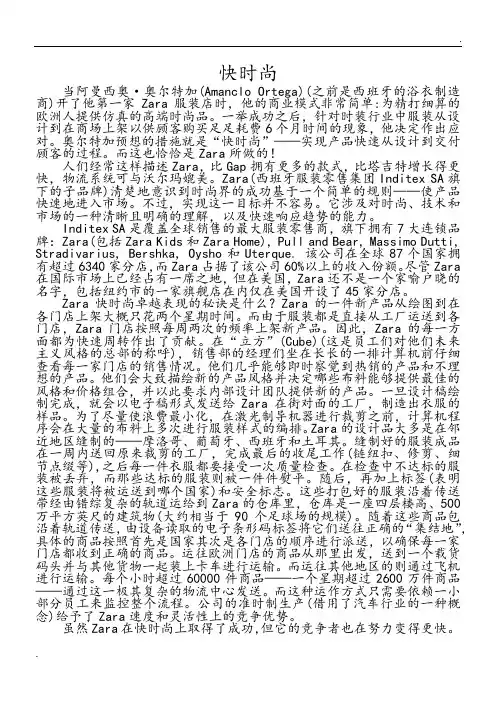 快时尚
当阿曼西奥·奥尔特加(Amanclo Ortega)(之前是西班牙的浴衣制造
商)开了他第一家 Zara 服装店时, 他的商业模式非常简单:为精打细算的
欧洲人提供仿真的高端时尚品。一举成功之后, 针对时装行业中服装从设
计到在商场上架以供顾客购买足足耗费 6 个月时间的现象, 他决定作出应
对。奥尔特加预想的措施就是“快时尚”——实现产品快速从设计到交付
顾客的过程。而这也恰恰是 Zara 所做的!
人们经常这样描述 Zara, 比 Gap 拥有更多的款式, 比塔吉特增长得更
快, 物流系统可与沃尔玛媲美。Zara(西班牙服装零售集团 Inditex SA 旗
下的子品牌)清楚地意识到时尚界的成功基于一个简单的规则——使产品
快速地进入市场。不过, 实现这一目标并不容易。它涉及对时尚、技术和
市场的一种清晰且明确的理解, 以及快速响应趋势的能力。
Inditex SA 是覆盖全球销售的最大服装零售商, 旗下拥有 7 大连锁品
牌: Zara(包括 Zara Kids 和 Zara Home), Pull and Bear, Massimo Dutti,
Stradivarius, Bershka, Oysho 和 Uterque. 该公司在全球 87 个国家拥
有超过 6340 家分店, 而 Zara 占据了该公司 60%以上的收入份额。尽管 Zara
在国际市场上已经占有一席之地, 但在美国, Zara 还不是一个家喻户晓的
名字, 包括纽约市的一家旗舰店在内仅在美国开设了 45 家分店。
Zara 快时尚卓越表现的秘诀是什么? Zara 的一件新产品从绘图到在
各门店上架大概只花两个星期时间。而由于服装都是直接从工厂运送到各
门店, Zara 门店按照每周两次的频率上架新产品。因此, Zara 的每一方
面都为快速周转作出了贡献。在“立方”(Cube)(这是员工们对他们未来
主义风格的总部的称呼), 销售部的经理们坐在长长的一排计算机前仔细
查看每一家门店的销售情况。他们几乎能够即时察觉到热销的产品和不理
想的产品。他们会大致描绘新的产品风格并决定哪些布料能够提供最佳的
风格和价格组合, 并以此要求内部设计团队提供新的产品。一旦设计稿绘
制完成, 就会以电子稿形式发送给 Zara 在街对面的工厂, 制造出衣服的
样品。为了尽量使浪费最小化, 在激光制导机器进行裁剪之前, 计算机程
序会在大量的布料上多次进行服装样式的编排。Zara 的设计品大多是在邻
近地区缝制的——摩洛哥、葡萄牙、西班牙和土耳其。缝制好的服装成品
在一周内送回原来裁剪的工厂, 完成最后的收尾工作(链纽扣、修剪、细
节点缀等), 之后每一件衣服都要接受一次质量检查。在检查中不达标的服
装被丢弃, 而那些达标的服装则被一件件熨平。随后, 再加上标签(表明
这些服装将被运送到哪个国家)和安全标志。这些打包好的服装沿着传送
带经由错综复杂的轨道运给到 Zara 的仓库里, 仓库是一座四层楼高、500
万平方英尺的建筑物(大约相当于 90 个足球场的规模)。随着这些商品包
沿着轨道传送, 由设备读取的电子条形码标签将它们送往正确的“集结地”,
具体的商品按照首先是国家其次是各门店的顺序进行派送, 以确保每一家
门店都收到正确的商品。运往欧洲门店的商品从那里出发, 送到一个载货
码头并与其他货物一起装上卡车进行运输。而运往其他地区的则通过飞机
进行运输。每个小时超过 60000 件商品——一个星期超过 2600 万件商品
——通过这一极其复杂的物流中心发送。而这种运作方式只需要依赖一小
部分员工来监控整个流程。公司的准时制生产(借用了汽车行业的一种概
念)给予了 Zara 速度和灵活性上的竞争优势。
虽然 Zara 在快时尚上取得了成功, 但它的竞争者也在努力变得更快。